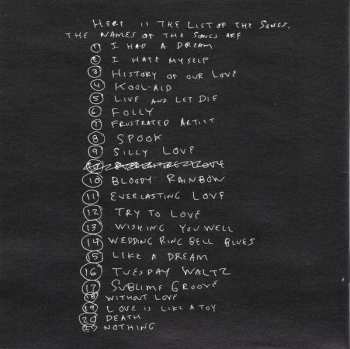 HERE IS THE LIST OF THE SONGS.
THE NAMES OF THE SONGS ARE
1 I HAD A DREAM
2 I HATE MYSELF
3 HISTORY OF OUR LOVE
4 KOOL-AID
5 LIVE AND LET DIE
6 FOLLY
7 FRUSTRATED ARTIST
8 SPOOK
9 SILLY LOVE
10 BLOODY RAINBOW
11 EVERLASTING LOVE
12 TRY TO LOVE
13 WISHING YOU WELL
14 WEDDING RING BELL BLUES
15 LIKE A DREAM
16 TUESDAY WALTZ
17 SUBLIME GROOVE
18 WITHOUT LOVE
19 LOVE IS LIKE A TOY
20 DEATH
NOTHING